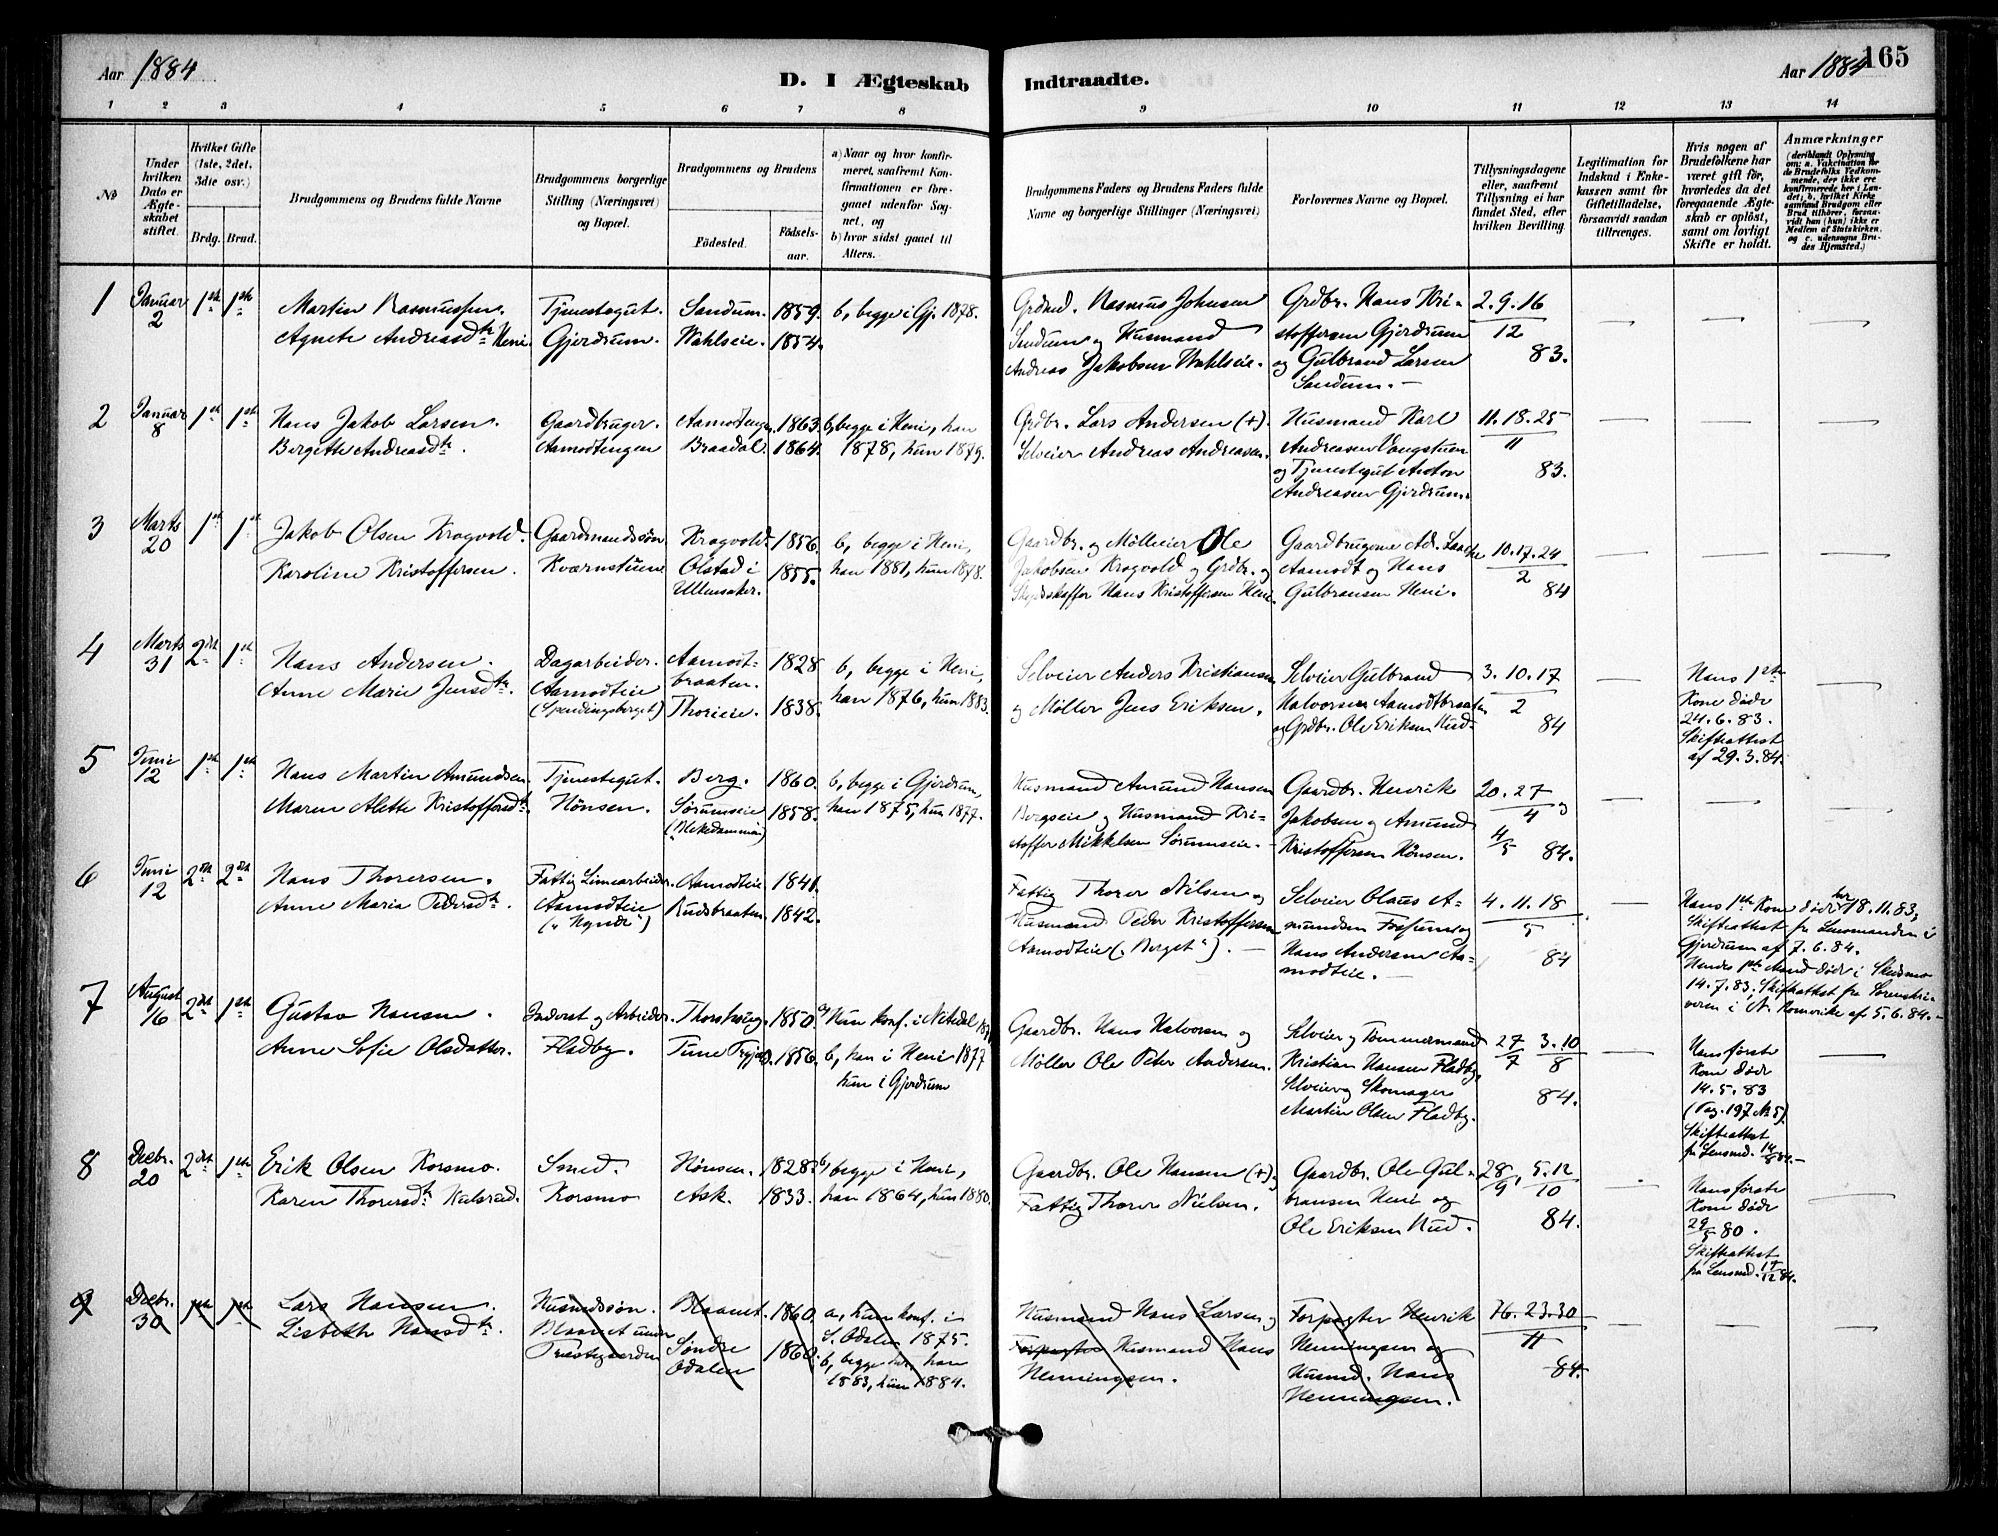 Aar 1884
D. I Ægteskab Indtraadte.
Aar 1884
165
1 2 3 4 5 6 7 8 9 10 11 12 13 14
№
Under hvilken Dato er Ægteskabet stiftet.
Hvilket Gifte (1ste, 2det, 3die osv.)
Brdg. Brud.
Brudgommens og Brudens fulde Navne
Brudgommens borgerlige Stilling (Næringsvei) og Bopæl.
Brudgommens og Brudens
Födested.
Födselsaar.
a) Naar og hvor konfirmeret, saafremt Konfirmationen er foregaaet udenfor Sognet, og
b) hvor sidst gaaet til Alters.
Brudgommens Faders og Brudens Faders fulde Navne og borgerlige Stillinger (Næringsvei)
Forlovernes Navne og Bopæl.
Tillysningsdagene eller, saafremt Tillysning ei har fundet Sted, efter hvilken Bevilling.
Legitimation for Indskud i Enkekassen samt for Giftetilladelse, forsaavidt saadan tiltrænges.
Hvis nogen af Brudefolkene har været gift för, hvorledes da det foregaaende Ægteskab er oplöst, samt om lovligt Skifte er holdt.
Anmærkninger
(deriblandt Oplysning om: a. Vakcination for de Brudefolks Vedkommende, der ikke ere konfirmerede her i Landet; b. hvilket Kirkesamfund Brudgom eller Brud tilhörer, forsaavidt han (hun) ikke er Medlem af Statskirken, og c. udensogns Brudes Hjemsted.)
1 Januar 2 1ste 1ste
Martin Rasmussen.
Agnete Andreasdtr Heni
Tjenestegut.
Gjerdrum.
Sandum. 1859.
Wahlseie. 1854.
b, begge i Gj. 1878.
Grdmd. Rasmus Johnsen
Sandum og Husmand
Andreas Jakobsen Wahlseie.
Grdbr. Hans Kri-
stoffersen Gjerdrum
og Gulbrand Larsen
Sandum. —
2. 9. 16
12
83.
2 Januar 8 1ste 1ste
Hans Jakob Larsen.
Bergitte Andreasdtr.
Gaardbruger.
Aamodtengen
Aamodtengen 1863.
Braadal. 1864.
b, begge i Heni, han
1878, hun 1879.
Grdbr. Lars Andersen (+).
Selveier Andreas Andreasen.
Husmand Karl
Andreasen Vangstuen
og Tjenestegut Anton
Andreasen Gjerdrum.
11. 18. 25
11
83.
3 Marts 20 1ste 1ste
Jakob Olsen Krogvold.
Karoline Kristoffersen.
Gaardmandssön
Kværnstuene
Krogvold. 1856.
Olstad i 1855.
Ullensaker.
b, begge i Heni,
han 1881, hun 1878.
Gaardbr. og Mölleier Ole
Jakobsen Krogvold og Grdbr. og
Hans Kristoffersen Heni.
Gaardbrugerne Adr. Laache
Aamodt og Hans
Gulbransen Heni.
10. 17. 24
2
84
4 Marts 31 2det 1ste
Hans Andersen.
Anne Marie Jensdtr.
Dagarbeider.
Aamodteie
(Spendingsberget)
Aamodt- 1828
braaten.
Thorieie. 1838.
b, begge i Heni,
han 1876, hun 1883.
Selveier Anders Kristiansen
og Möller Jens Eriksen.
Selveier Gulbrand
Halvorsen Aamodtbraaten
og Grdbr. Ole Eriksen Hud-
3. 10. 17
2
84
Hans 1ste
Kone döde
24. 6. 83.
Skifteattest
af 29. 3. 84.
5 Juni 12 1ste 1ste
Hans Martin Amundsen
Maren Alette Kristoffersdtr.
Tjenestegut.
Hönsen.
Berg. 1860.
Sörumseie 1858.
(Blekedammen)
b, begge i Gjerdrum,
han 1875, hun 1877.
Husmand Amund Hansen
Bergseie og Husmand Kri-
stoffer Mikkelsen Sörumseie.
Gaardbr. Henrik
Jakobsen og Amund
Kristoffersen Hönsen.
20. 27
4 og
4/5 84.
6 Juni 12 2det 2det
Hans Thoresen.
Anne Maria Pedersdtr.
Fattig Linnearbeider.
Aamodteie
Aamodteie 1841.
Rudsbraaten. 1842.
Fattig Thorer Nilsen og
Husmand Peder Kristoffersen
Aamodteie („Berget“). —
Selveier Olaus A-
mundsen Fossum og
Hans Andersen Aa-
modteie. —
4. 11. 18
5
84
Hans 1ste Kone döde her 18. 11. 83;
Skifteattest fra Lensmanden i
Gjerdrum af 7. 6. 84.
Hendes 1ste Mand döde i Skedsmo
14. 7. 83. Skifteattest fra Sorenskri-
veren i N. Romerike af 5. 6. 84. —
7 August 16 2det 1ste
Gustav Hansen.
Anne Sofie Olsdatter.
Inderst og Arbeider.
Fladby.
Thorshoug. 1850.
Tune 1856.
a, Hun konf. i Nitedal
b, han i Heni 1877
hun i Gjerdrum
Gaardbr. Hans Halvorsen og
Möller Ole Peter Andersen.
Selveier og Tömmermand
Kristian Hansen Fladby.
Selveier og Skomager
Martin Olsen Fladby.
27/7 3. 10/8
84.
Hans förste
Kone döde
14. 5. 83
(Pag. 197 № 5).
Skifteattest
fra Lensmd. 14/8 84. —
8 Decbr. 20 2det 1ste
Erik Olsen Korsmo.
Karen Thorersdtr Kulsrud.
Smed.
Korsmo
Hönsen. 1828.
Ask. 1833.
b, begge i Heni,
han 1864, hun 1880.
Gaardbr. Ole Hansen (+) og
Fattig Thorer Nielsen.
Gaardbr. Ole Gul-
bransen Heni og
Ole Eriksen Hud.
28/9, 5. 12/10
84.
Hans förste
Kone döde
29/8 80.
Skifteattest
fra Lensmd. 17/12 84.
9 Decbr. 30 1ste 1ste
Lars Hansen.
Lisbeth Hansdtr.
Husmdssön.
Blaaret under
Præstegaarden
Blaaret. 1860.
Söndre 1860.
Odalen
a, hun konf. i
S. Odalen 1875.
b, begge her, han
1883, hun 1884.
Husmand Hans Larsen og
Forpagter Husmand Hans
Henningsen.
Forpagter Henrik
Henningsen og
Husmd. Hans
Henningsen.
16. 23. 30
11
84.